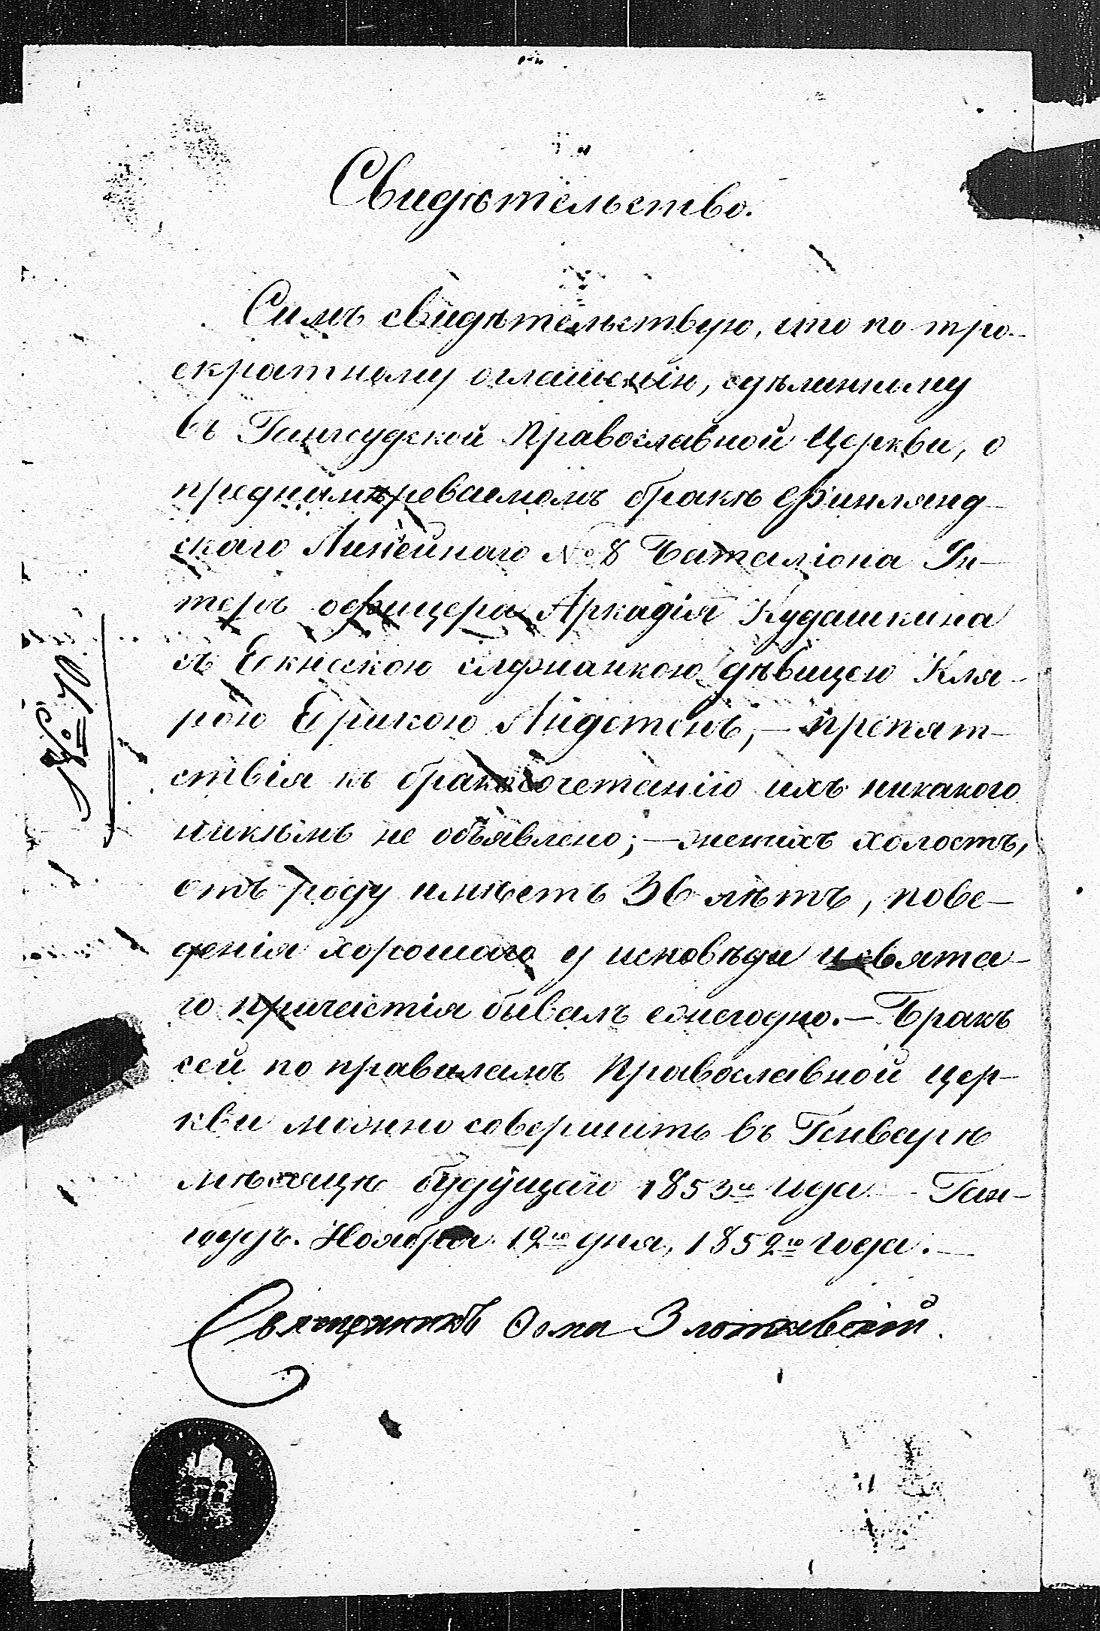 Свидѣтельство.
Симъ свидѣтельствую, что по тро-
екратному оглашенію, сдѣланному
въ Гангеудской Православной Церкви, о
преднамѣреваемомъ бракѣ Финлянд-
скаго Линейнаго № 8 Баталіона Ун-
теръ офицера Аркадія Кудашкина
съ Екнескою служанкою дѣвицею Кля-
рою Ерикою Лидстенъ, — препят-
ствія къ бракосочетанію ихъ никакого
никѣмъ не объявлено; — женихъ холостъ,
отъ роду имѣетъ 36 лѣтъ, пове-
денія хорошаго у исповѣди и свята-
го причастія бывалъ ежегодно. — Бракъ
сей по правиламъ Православной Цер-
кви можно совершить въ Генварѣ
мѣсяцѣ будущаго 1853го года. Ган-
геудъ. Ноября 12го дня, 1852го года. —
Священникъ Ѳома Злоткевскій.
№ 70